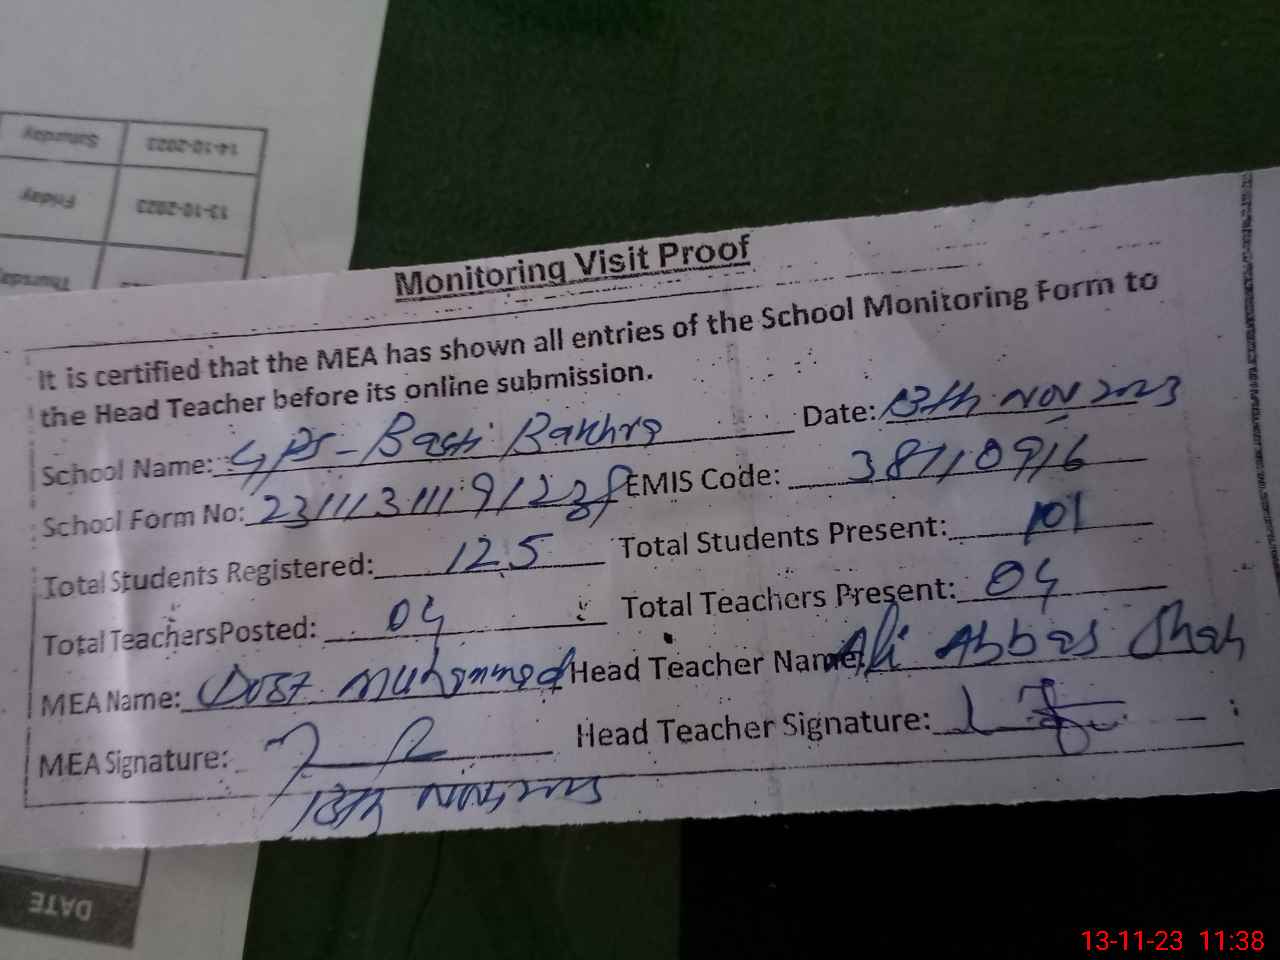 Saturday 14-10-2023
Friday 13-10-2023
Thursday
Monitoring Visit Proof
It is certified that the MEA has shown all entries of the School Monitoring Form to
the Head Teacher before its online submission.
School Name: GPS - Basti Bakhra Date: 13th NOV 2023
School Form No: EMIS Code: 38710916
Total Students Registered: 125 Total Students Present: 101
Total Teachers Posted: 04 Total Teachers Present: 04
MEA Name: Dost Muhammed Head Teacher Name: Ali Abbas Shah
MEA Signature: Head Teacher Signature:
13th Nov, 2023
DATE
13-11-23 11:38